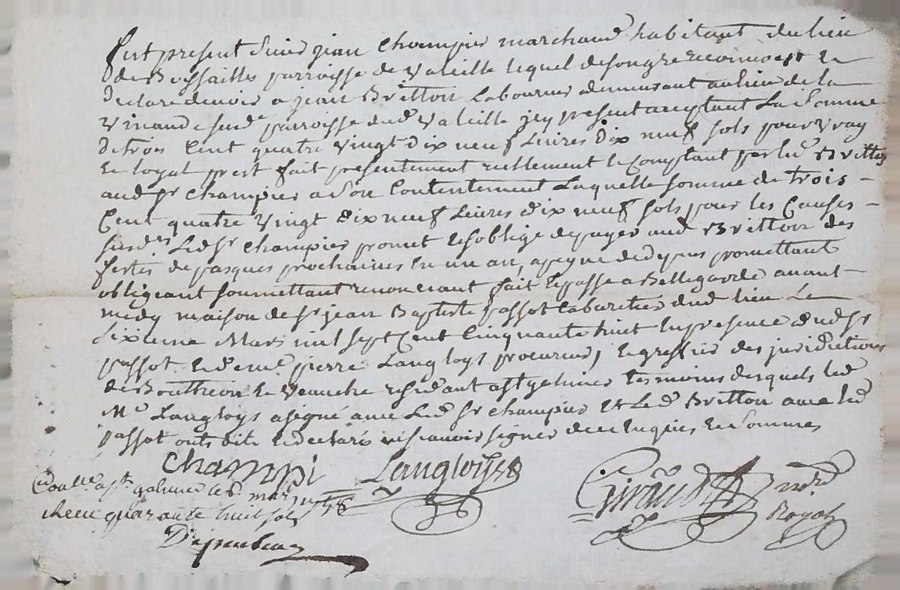 fut present Sieur jean Champier marchand habitant du lieu
de Boissailles parroisse de Valeille lequel de son gre reconnoist et
declare devoir a jean Britton Laboureur demeurant au lieu de la
Vinande susd parroisse dud Valeille jcy present acceptant La Somme
de trois Cent quatre vingt dix neuf Livres dix neuf sols pour vray
et loyal prest fait presentement reellement et Comptant par led Britton
aud Sr Champier a Son Contentement Laquelle somme de trois
Cent quatre vingt dix neuf Livres dix neuf sols pour les Causes
susdes Led Sr Champier promet et soblige de payer aud Britton des
festes de pasques prochaines En un an, a peyne de depens promettant
obligeant soumettant renonceant fait et passe a Bellegarde avant
midy maison de Sr jean Baptiste passot Cabaretier dud lieu Le
Sixieme Mars mil sept Cent Cinquante huit En presence dud Sr
passot et de me pierre Langloys procureur, et greffier des juridictions
de Boutheon et Veauche residant a St galmier tesmoins desquels led
Me Langloys a signé avec Led Sr Champier et Led Britton avec led
passot onts dit et declaré ne scavoir signer de ce Enquis et Sommes
Champi Langloys Giraud nore
Royal
Coulle a St galmier le 8 mars 1758
Recu quarante huit sols